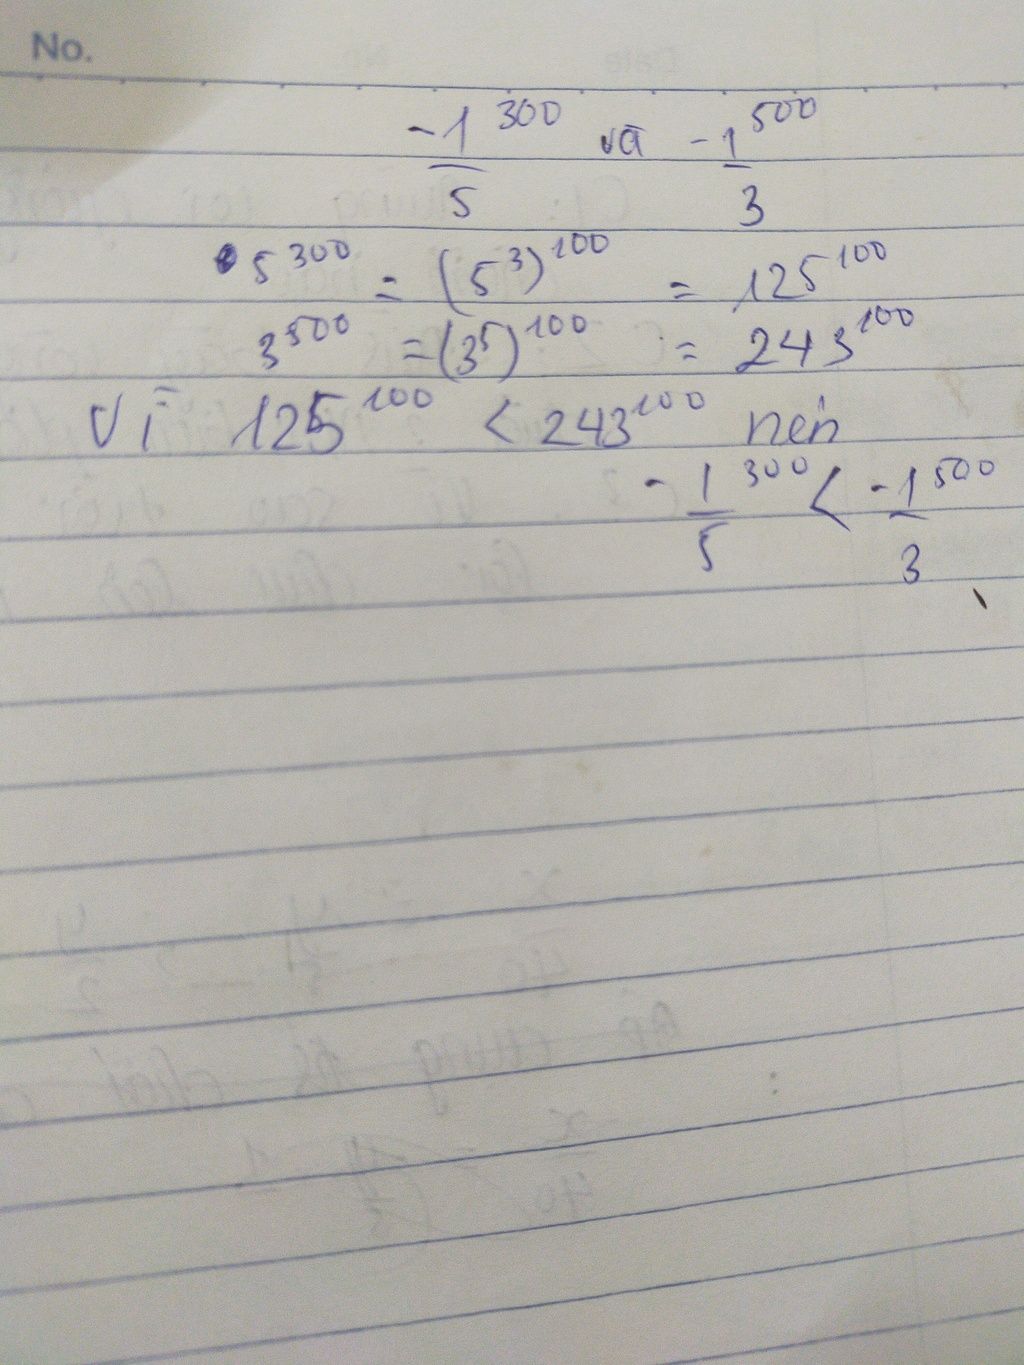 No.
-1/5 ^300 và -1/3 ^500
5^300 = (5^3)^100 = 125^100
3^500 = (3^5)^100 = 243^100
Vì 125^100 < 243^100 nên
-1/5 ^300 < -1/3 ^500